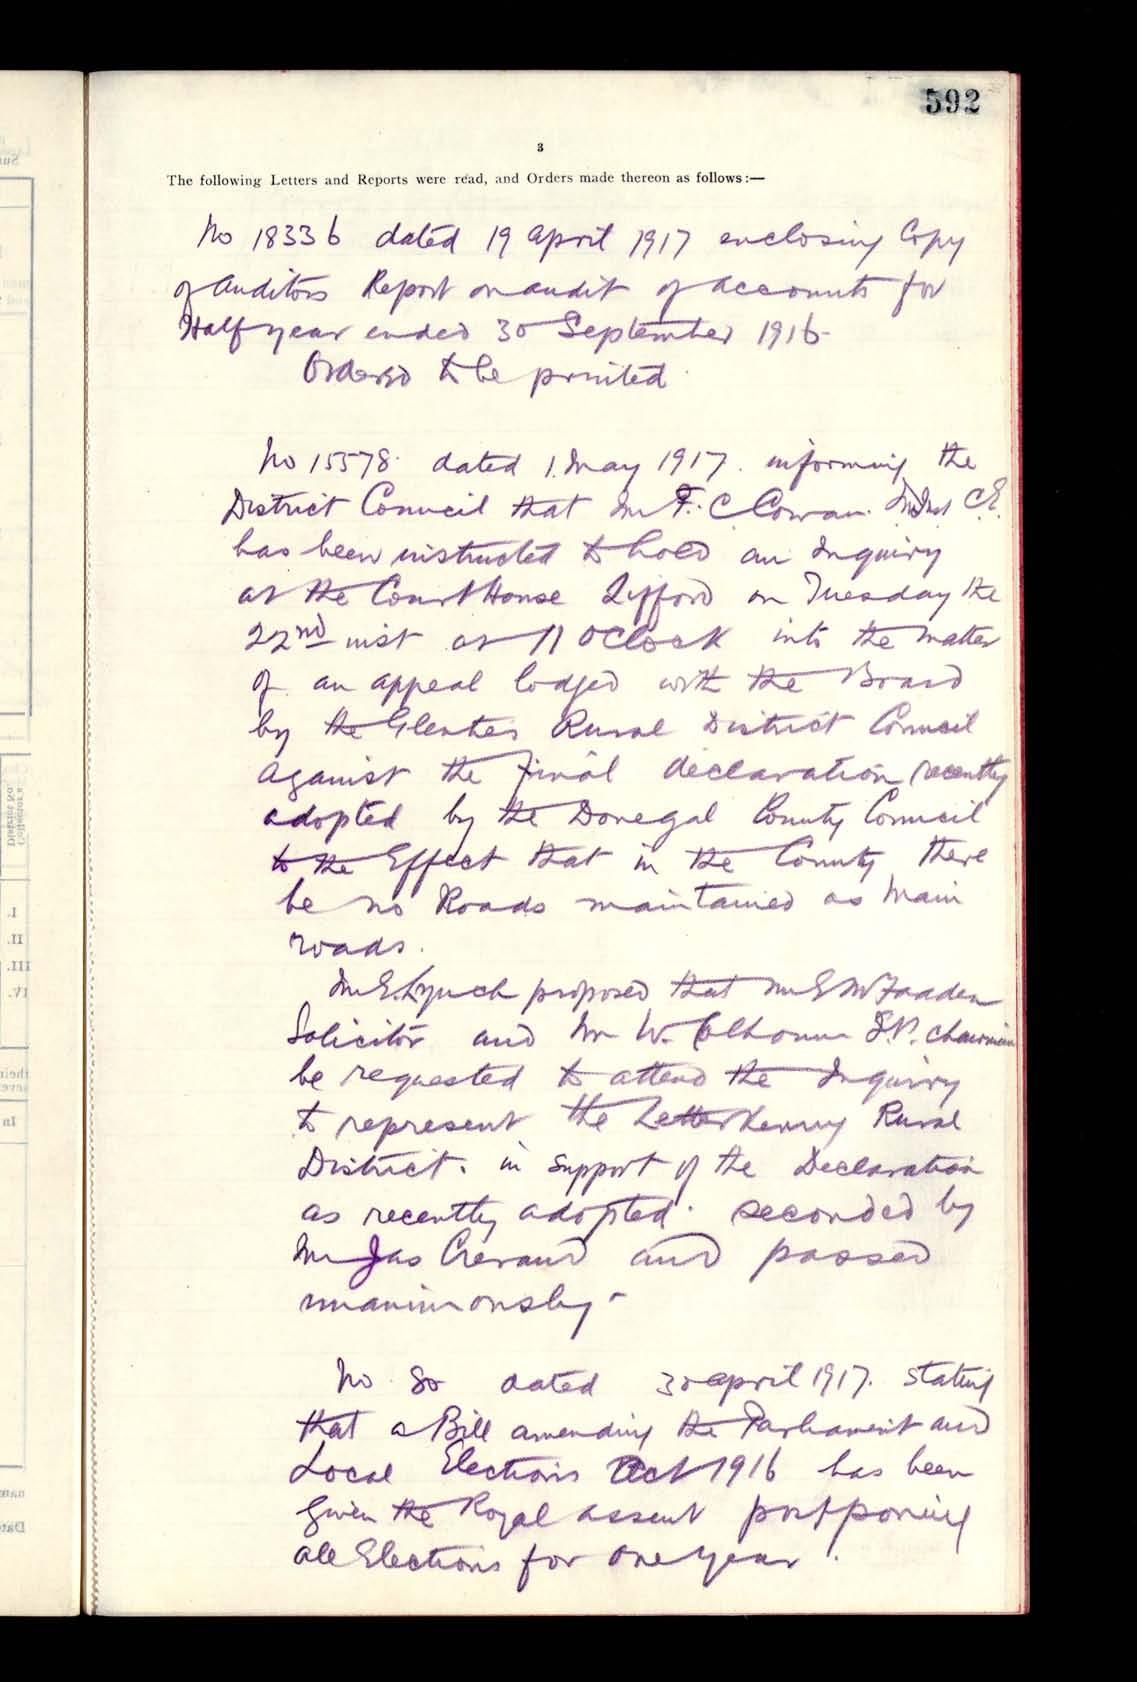 592
3
The following Letters and Reports were read, and Orders made thereon as follows:—
No 18336 dated 19 April 1917 enclosing Copy
of Auditors Report on audit of accounts for
Half year ended 30 September 1916-
Ordered to be printed
No 15578 dated 1 May 1917. informing the
District Council that Mr F. C Cowan. M Inst C.E.
has been instructed to hold an Inquiry
at the Court House Lifford on Tuesday the
22nd inst at 11 OClock into the matter
of an appeal lodged with the Board
by the Glenties Rural District Council
against the final declaration recently
adopted by the Donegal County Council
to the Effect that in the County there
be no Roads maintained as Main
roads.
Mr E. Lynch proposed that Mr E McFadden
Solicitor and Mr W. Colhoun J.P. chairman
be requested to attend the Inquiry
to represent the Letterkenny Rural
District. in support of the Declaration
as recently adopted. seconded by
Mr Jas and passed
unanimously-
No 80 dated 30 april 1917. stating
that a Bill amending the Parliament and
Local Elections Act 1916 has been
given the Royal assent postponing
all Elections for one year.